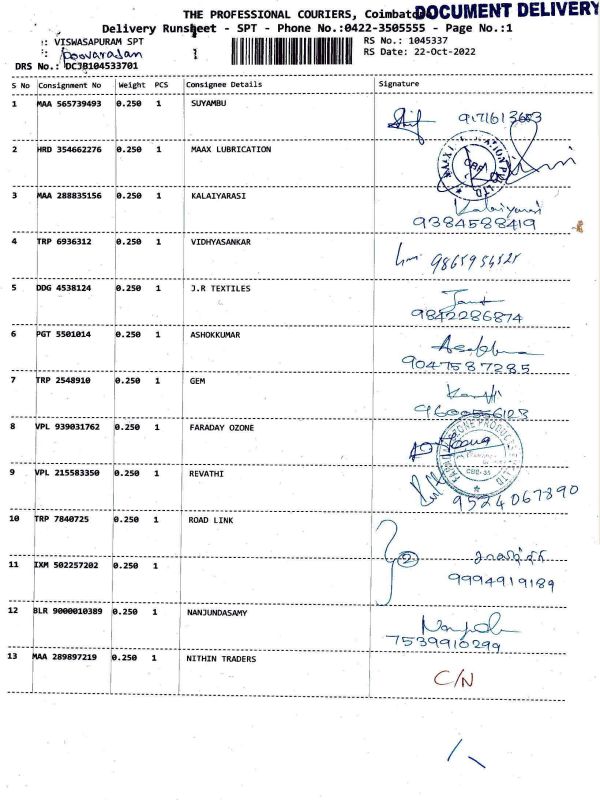 THE PROFESSIONAL COURIERS, Coimbato
DOCUMENT DELIVERY
Delivery Runsheet - SPT - Phone No.:0422-3505555 - Page No.:1
: VISWASAPURAM SPT
RS No.: 1045337
: Poovarasan
RS Date: 22-Oct-2022
DRS No.: DCJB104533701
S No Consignment No Weight PCS Consignee Details Signature
1 MAA 565739493 0.250 1 SUYAMBU
2 HRD 354662276 0.250 1 MAAX LUBRICATION
CBE
3 MAA 288835156 0.250 1 KALAIYARASI Kalaiyarasi
9384588419
4 TRP 6936312 0.250 1 VIDHYASANKAR
5 DDG 4538124 0.250 1 J.R TEXTILES
9842286874
6 PGT 5501014 0.250 1 ASHOKKUMAR
9047587285
7 TRP 2548910 0.250 1 GEM
9600556128
8 VPL 939031762 0.250 1 FARADAY OZONE
FARADAY OZONE PRODUCTS PVT LTD
CBE-35
9 VPL 215583350 0.250 1 REVATHI
9524067890
10 TRP 7840725 0.250 1 ROAD LINK
2
11 IXM 502257202 0.250 1
9994919189
12 BLR 9000010389 0.250 1 NANJUNDASAMY
7539910299
13 MAA 289897219 0.250 1 NITHIN TRADERS C/N